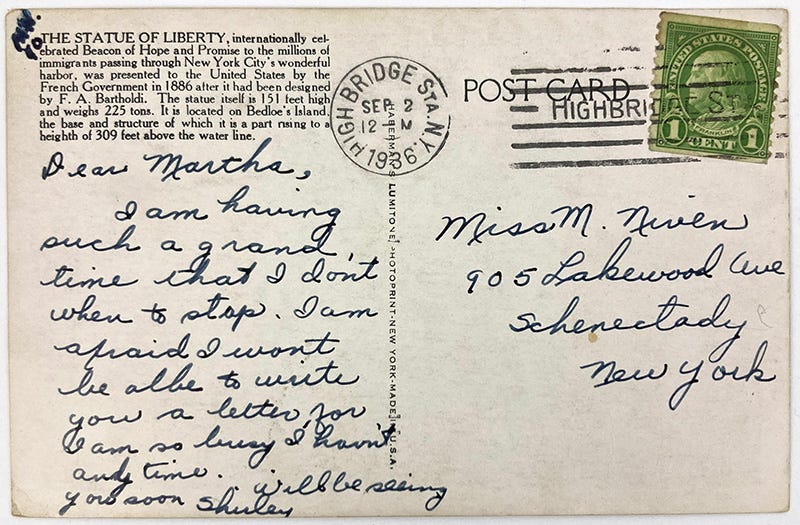 THE STATUE OF LIBERTY, internationally cel-
ebrated Beacon of Hope and Promise to the millions of
immigrants passing through New York City's wonderful
harbor, was presented to the United States by the
French Government in 1886 after it had been designed
by F. A. Bartholdi. The statue itself is 151 feet high
and weighs 225 tons. It is located on Bedloe's Island,
the base and structure of which it is a part rising to a
heighth of 309 feet above the water line.
Dear Martha,
I am having
such a grand
time that I don't
when to stop. I am
afraid I wont
be albe to write
you a letter for
I am so busy I havn't
andy time. Will be seeing
you soon Shirley
HABERMAN'S LUMITONE PHOTOPRINT-NEW YORK-MADE IN U.S.A.
HIGH BRIDGE STA. N.Y.
SEP 2
12-M
1936
POST CARD
HIGHBRIDGE ST
UNITED STATES POSTAGE
FRANKLIN
1 CENT 1
Miss M. Niven
905 Lakewood Ave
Schenectady
New York